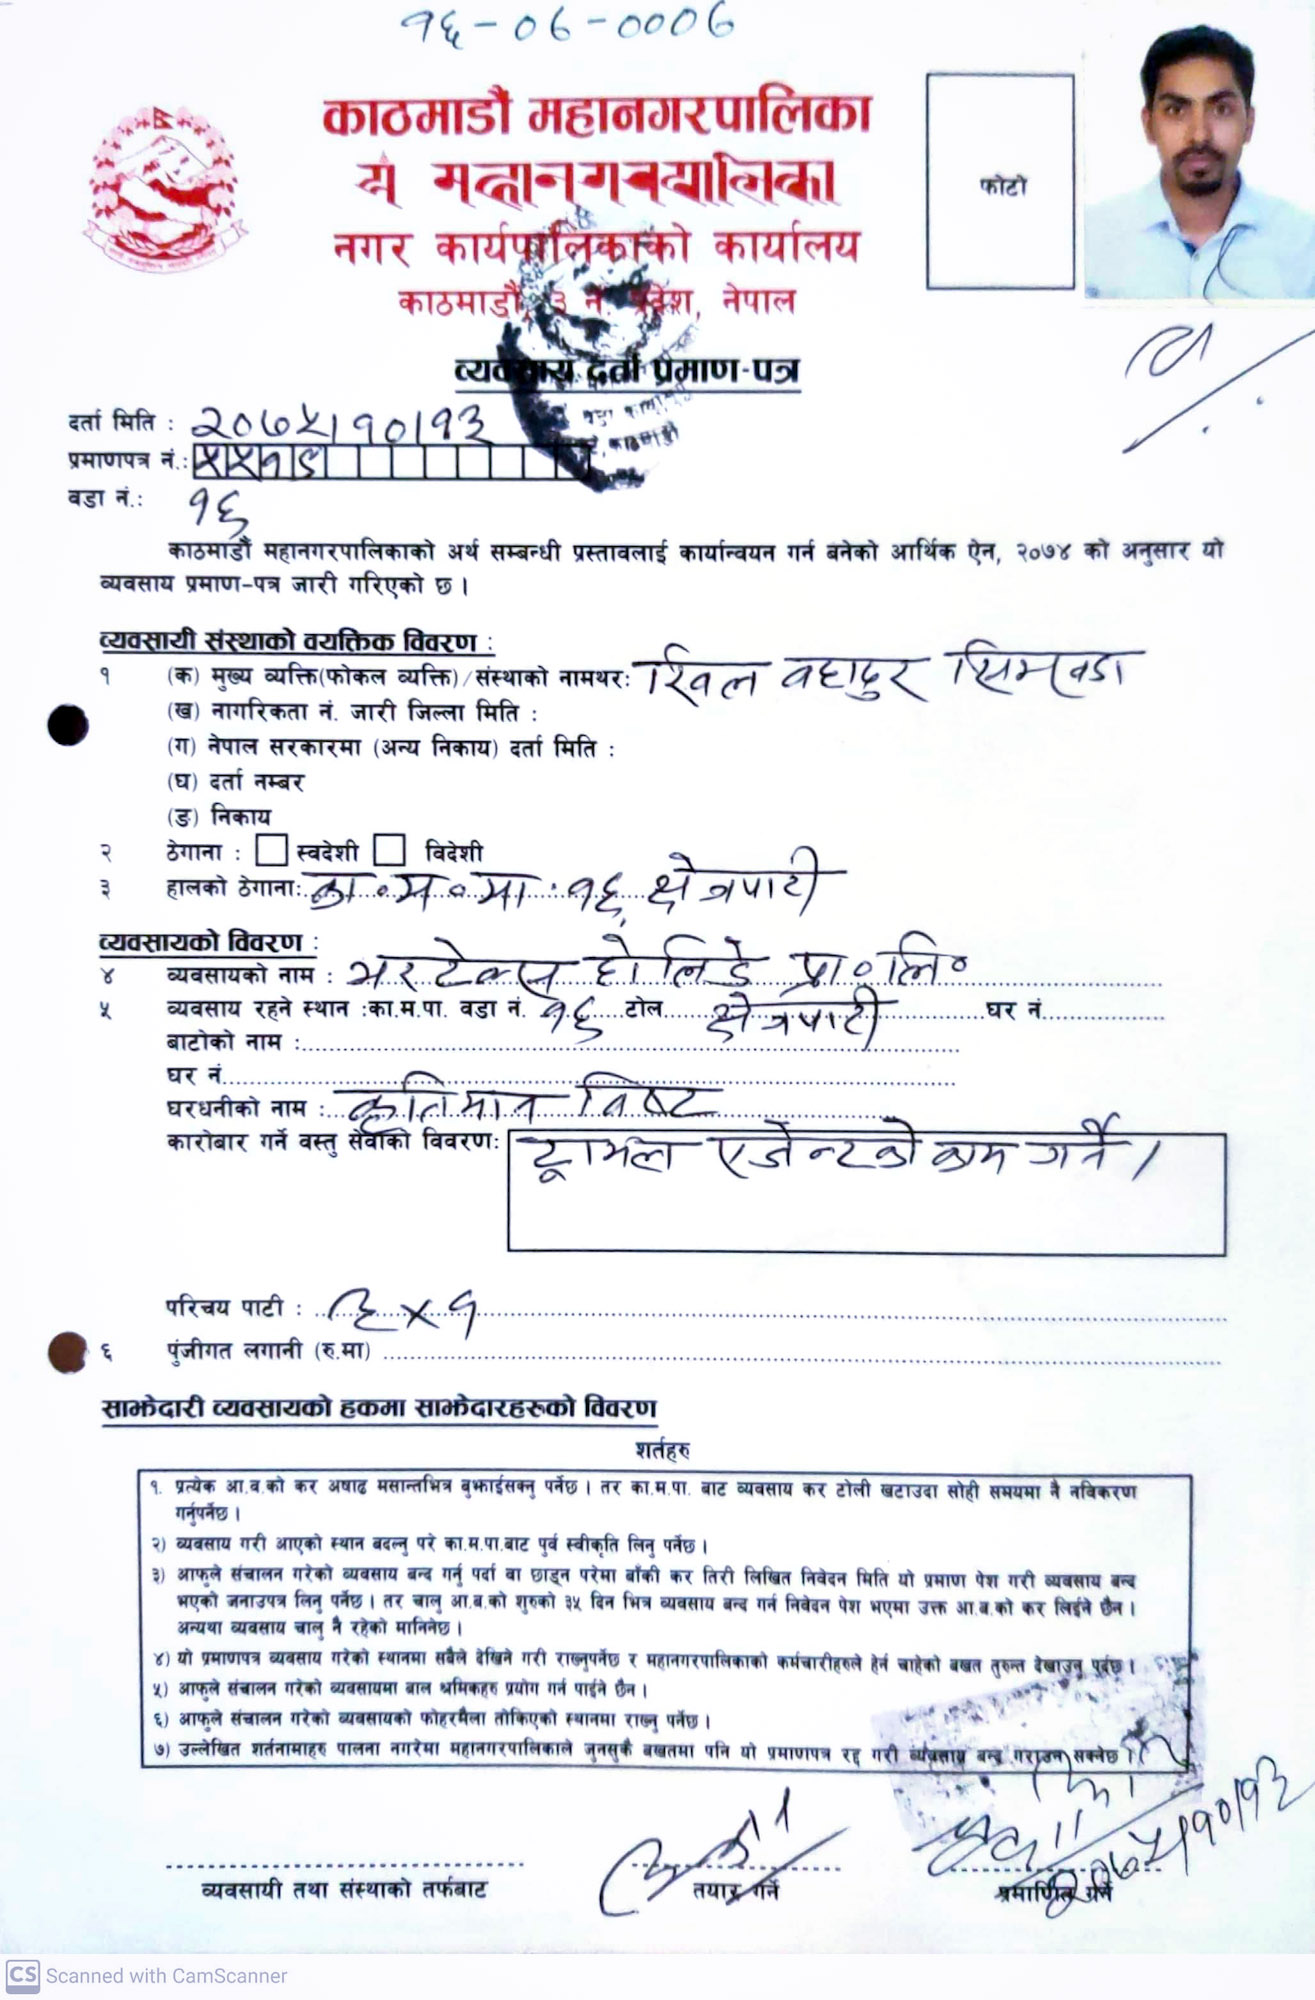 १६-०६-०००६
काठमाडौं महानगरपालिका
नगर कार्यपालिकाको कार्यालय
काठमाडौं, ३ नं. प्रदेश, नेपाल
फोटो
व्यवसाय दर्ता प्रमाण-पत्र
दर्ता मिति : २०७५।१०।१३
प्रमाणपत्र नं.:
वडा नं.: १६
काठमाडौं महानगरपालिकाको अर्थ सम्बन्धी प्रस्तावलाई कार्यान्वयन गर्न बनेको आर्थिक ऐन, २०७४ को अनुसार यो
व्यवसाय प्रमाण-पत्र जारी गरिएको छ ।
व्यवसायी संस्थाको वयक्तिक विवरण :
१ (क) मुख्य व्यक्ति(फोकल व्यक्ति)/संस्थाको नामथर: बहादुर
(ख) नागरिकता नं. जारी जिल्ला मिति :
(ग) नेपाल सरकारमा (अन्य निकाय) दर्ता मिति :
(घ) दर्ता नम्बर
(ङ) निकाय
२ ठेगाना : स्वदेशी विदेशी
३ हालको ठेगाना: का॰म॰पा. १६, क्षेत्रपाटी
व्यवसायको विवरण :
४ व्यवसायको नाम : भरटेक्स होलिडे प्रा॰लि॰
५ व्यवसाय रहने स्थान :का.म.पा. वडा नं. १६ टोल क्षेत्रपाटी घर नं.
बाटोको नाम :
घर नं.
घरधनीको नाम : कृतिमान विष्ट
कारोबार गर्ने वस्तु सेवाको विवरण: ट्राभल एजेन्टको काम गर्ने ।
परिचय पाटी : ३×१
६ पुंजीगत लगानी (रु.मा)
साझेदारी व्यवसायको हकमा साझेदारहरुको विवरण
शर्तहरु
१. प्रत्येक आ.ब.को कर अषाढ मसान्तभित्र बुझाईसक्नु पर्नेछ । तर का.म.पा. बाट व्यवसाय कर टोली खटाउदा सोही समयमा नै नविकरण
गर्नुपर्नेछ ।
२) व्यवसाय गरी आएको स्थान बदल्नु परे का.म.पा.बाट पुर्व स्वीकृति लिनु पर्नेछ ।
३) आफुले संचालन गरेको व्यवसाय बन्द गर्नु पर्दा वा छाड्न परेमा बाँकी कर तिरी लिखित निवेदन मिति यो प्रमाण पेश गरी व्यवसाय बन्द
भएको जनाउपत्र लिनु पर्नेछ । तर चालु आ.ब.को शुरुको ३५ दिन भित्र व्यवसाय बन्द गर्न निवेदन पेश भएमा उक्त आ.ब.को कर लिईने छैन ।
अन्यथा व्यवसाय चालु नै रहेको मानिनेछ ।
४) यो प्रमाणपत्र व्यवसाय गरेको स्थानमा सबैले देखिने गरी राख्नुपर्नेछ र महानगरपालिकाको कर्मचारीहरुले हेर्न चाहेको बखत तुरुन्त देखाउनु पर्दछ ।
५) आफुले संचालन गरेको व्यवसायमा बाल श्रमिकहरु प्रयोग गर्न पाईने छैन ।
६) आफुले संचालन गरेको व्यवसायको फोहरमैला तोकिएको स्थानमा राख्नु पर्नेछ ।
७) उल्लेखित शर्तनामाहरु पालना नगरेमा महानगरपालिकाले जुनसुकै बखतमा पनि यो प्रमाणपत्र रद्द गरी व्यवसाय बन्द गराउन सक्नेछ ।
२०७५।१०।१३
व्यवसायी तथा संस्थाको तर्फबाट तयार गर्ने प्रमाणित गर्ने
CS Scanned with CamScanner